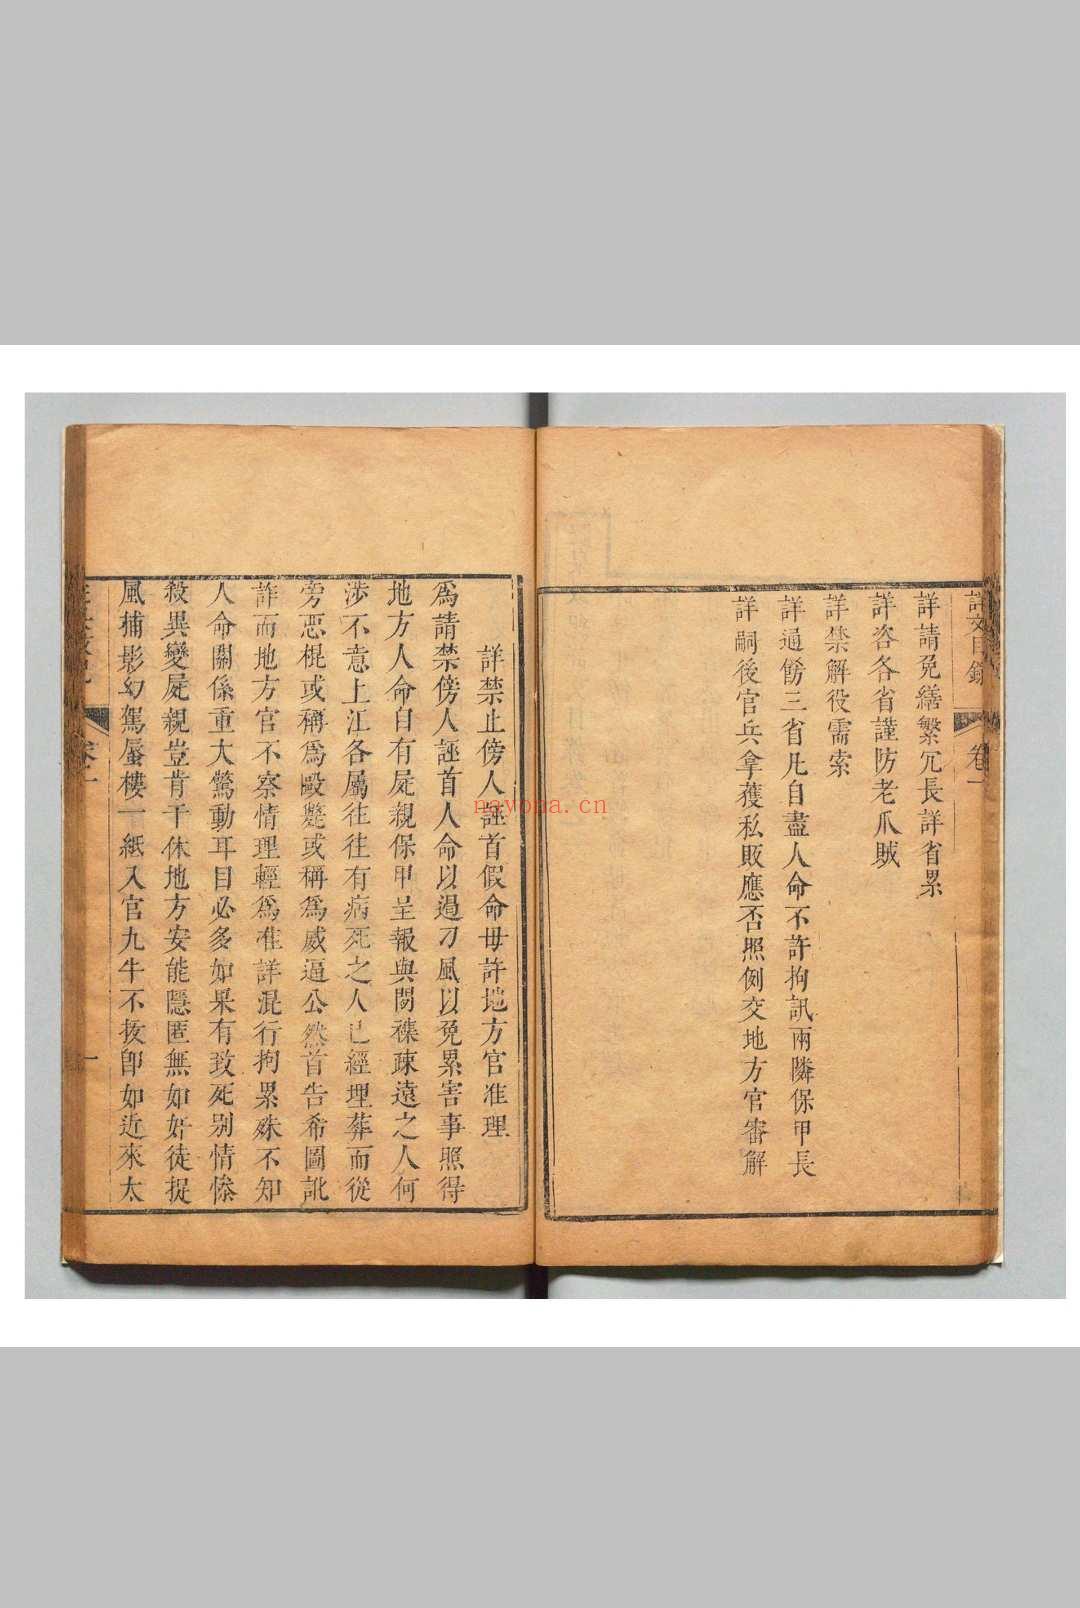 詳文目錄
卷一
詳請免繕繁冗長詳省累
詳咨各省謹防老爪賊
詳禁解役需索
詳通飭三省凡自盡人命不許拘訊兩隣保甲長
詳嗣後官兵拿獲私販應否照例交地方官審解
詳禁止傍人誣首假命毋許地方官准理
爲請禁傍人誣首人命以遏刁風以免累害事照得
地方人命自有屍親保甲呈報與閒襍疎遠之人何
涉不意上江各屬往往有病死之人已經埋葬而從
旁惡棍或稱爲毆斃或稱爲威逼公然首告希圖訛
詐而地方官不察情理輕爲准詳混行拘累殊不知
人命關係重大驚動耳目必多如果有致死别情慘
殺異變屍親豈肯干休地方安能隱匿無如奸徒捉
風捕影幻駕蜃樓一紙入官九牛不拔卽如近來太
卷一
一
nayona.cn